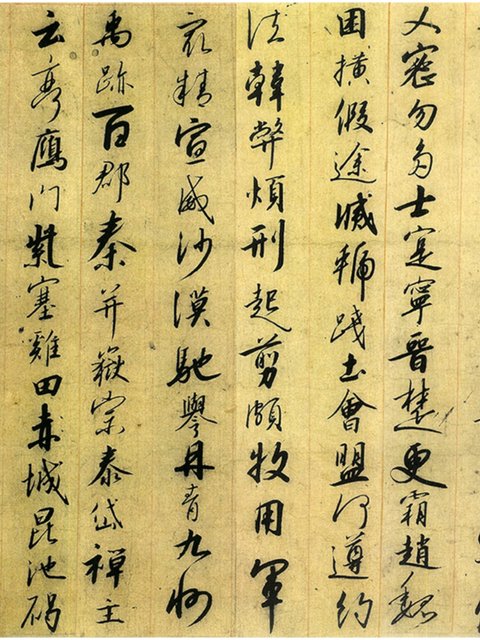 乂密勿多士寔寧晉楚更霸趙魏
困橫假途滅虢踐土會盟何遵約
法韓弊煩刑起翦頗牧用軍
最精宣威沙漠馳譽丹青九州
禹跡百郡秦并嶽宗泰岱禪主
云亭鴈門紫塞雞田赤城昆池碣